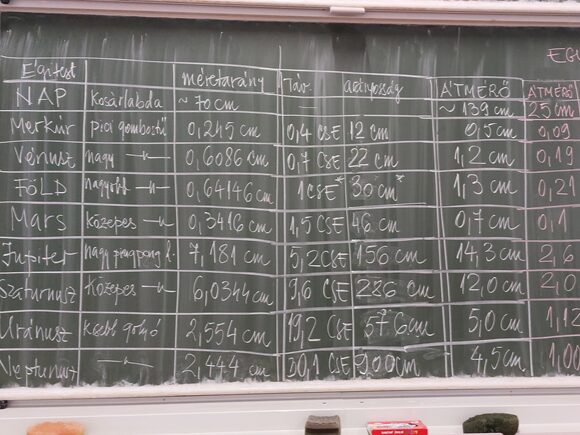 EGI
Égitest méretarány Táv. arányosság ÁTMÉRŐ ÁTMÉRŐ
NAP kosárlabda ~70 cm — ~139 cm 25 cm
Merkúr pici gombostű 0,245 cm 0,4 CSE 12 cm 0,5 cm 0,09
Vénusz nagy —"— 0,6086 cm 0,7 CSE 22 cm 1,2 cm 0,19
FÖLD nagyobb —"— 0,64146 cm 1 CSE* 30 cm* 1,3 cm 0,21
Mars közepes —"— 0,3416 cm 1,5 CSE 46 cm 0,7 cm 0,1
Jupiter nagy pingpong l. 7,181 cm 5,2 CSE 156 cm 14,3 cm 2,6
Szaturnusz közepes —"— 6,0344 cm 9,6 CSE 286 cm 12,0 cm 2,0
Uránusz kisebb golyó 2,554 cm 19,2 CSE 576 cm 5,0 cm 1,12
Neptunusz —"— 2,444 cm 30,1 CSE 900 cm 4,5 cm 1,00